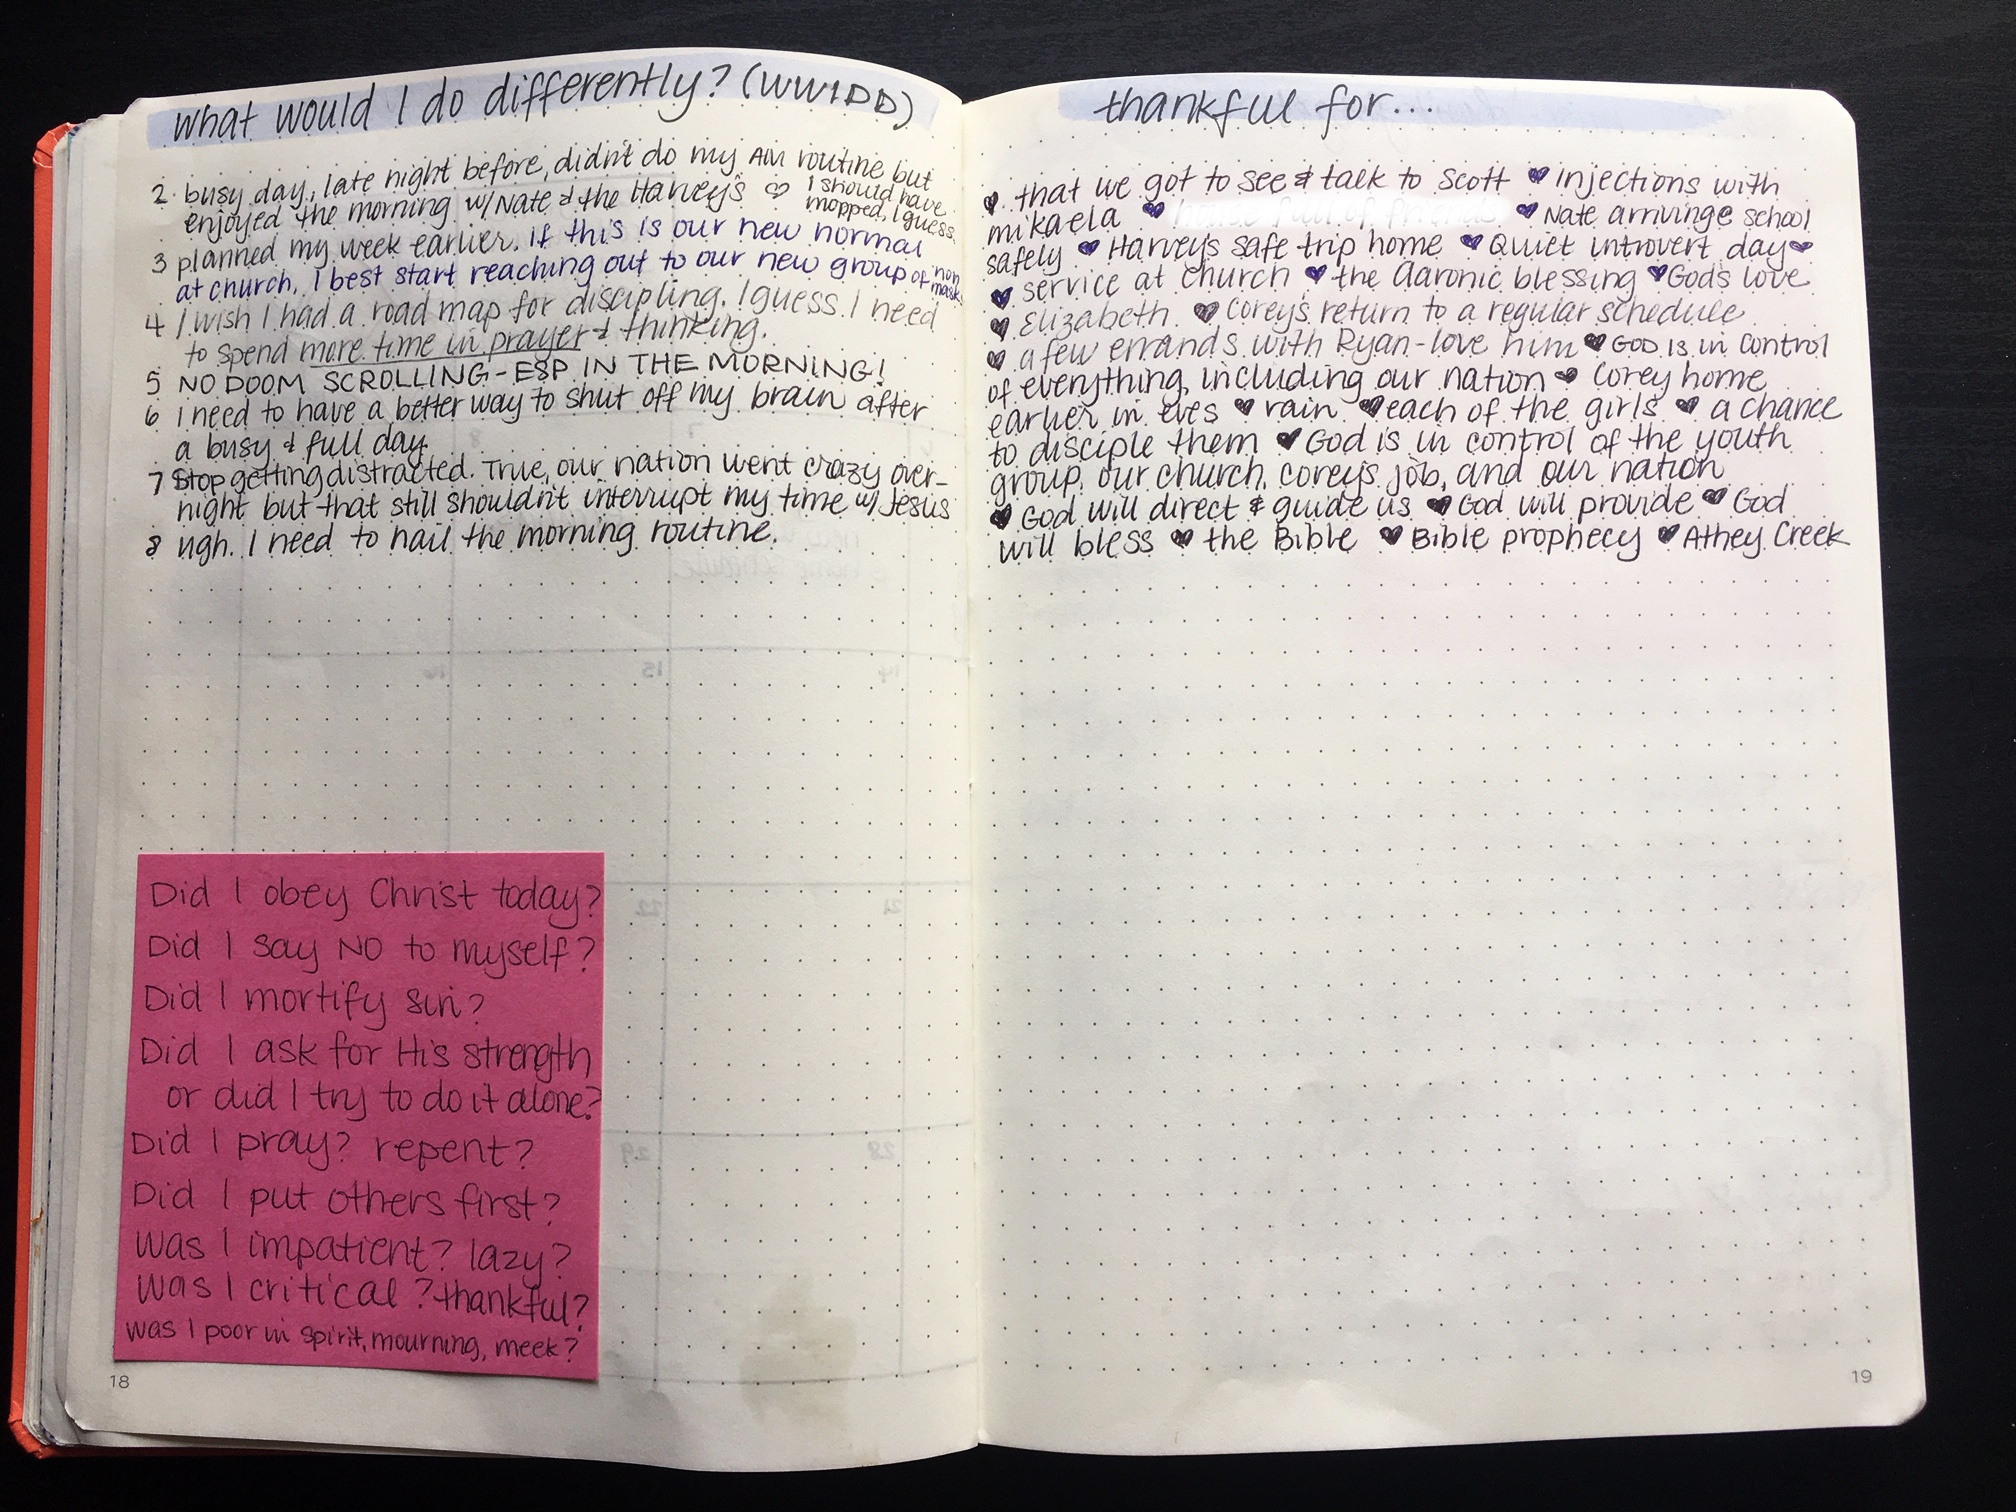 what would I do differently? (WWIDD)
2 busy day, late night before, didn't do my AM routine but
enjoyed the morning w/ Nate & the Harvey's ♡ I should have
mopped, I guess.
3 planned my week earlier. If this is our new normal
at church, I best start reaching out to our new group of "non
masks
4 I wish I had a road map for discipling. I guess I need
to spend more time in prayer & thinking.
5 NO DOOM SCROLLING - ESP IN THE MORNING!
6 I need to have a better way to shut off my brain after
a busy & full day
7 Stop getting distracted. True, our nation went crazy over-
night but that still shouldn't interrupt my time w/ Jesus
8 ugh. I need to nail the morning routine.
Did I obey Christ today?
Did I say NO to myself?
Did I mortify sin?
Did I ask for His strength
or did I try to do it alone?
Did I pray? repent?
Did I put others first?
Was I impatient? lazy?
Was I critical? thankful?
Was I poor in spirit, mourning, meek?
18
thankful for...
♥ that we got to see & talk to Scott ♥ injections with
mikaela ♥ house full of friends ♥ Nate arrivinge school
safely ♥ Harvey's safe trip home ♥ Quiet introvert day ♥
♥ service at church ♥ the Aaronic blessing ♥ God's love
♥ Elizabeth ♥ Corey's return to a regular schedule
♥ a few errands with Ryan - love him ♥ GOD IS in control
of everything, including our nation ♥ Corey home
earlier in eves ♥ rain ♥ each of the girls ♥ a chance
to disciple them ♥ God is in control of the youth
group, our church, corey's job, and our nation
♥ God will direct & guide us ♥ God will provide ♥ God
will bless ♥ the Bible ♥ Bible prophecy ♥ Athey Creek
19